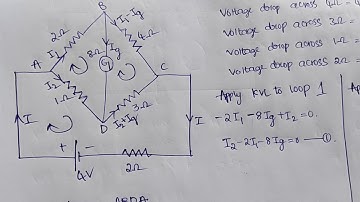 B
2Ω
I₁
I₁-Ig
4Ω
8Ω
Ig
G
A
C
I₂
1Ω
3Ω
I₂+Ig
D
I
I
+
-
4V
2Ω
Voltage drop across 4Ω =
Voltage drop across 3Ω =
Voltage drop across 1Ω =
Voltage drop across 2Ω =
Apply KVL to loop 1
-2I₁-8Ig+I₂=0.
I₂-2I₁-8Ig=0 — ①.